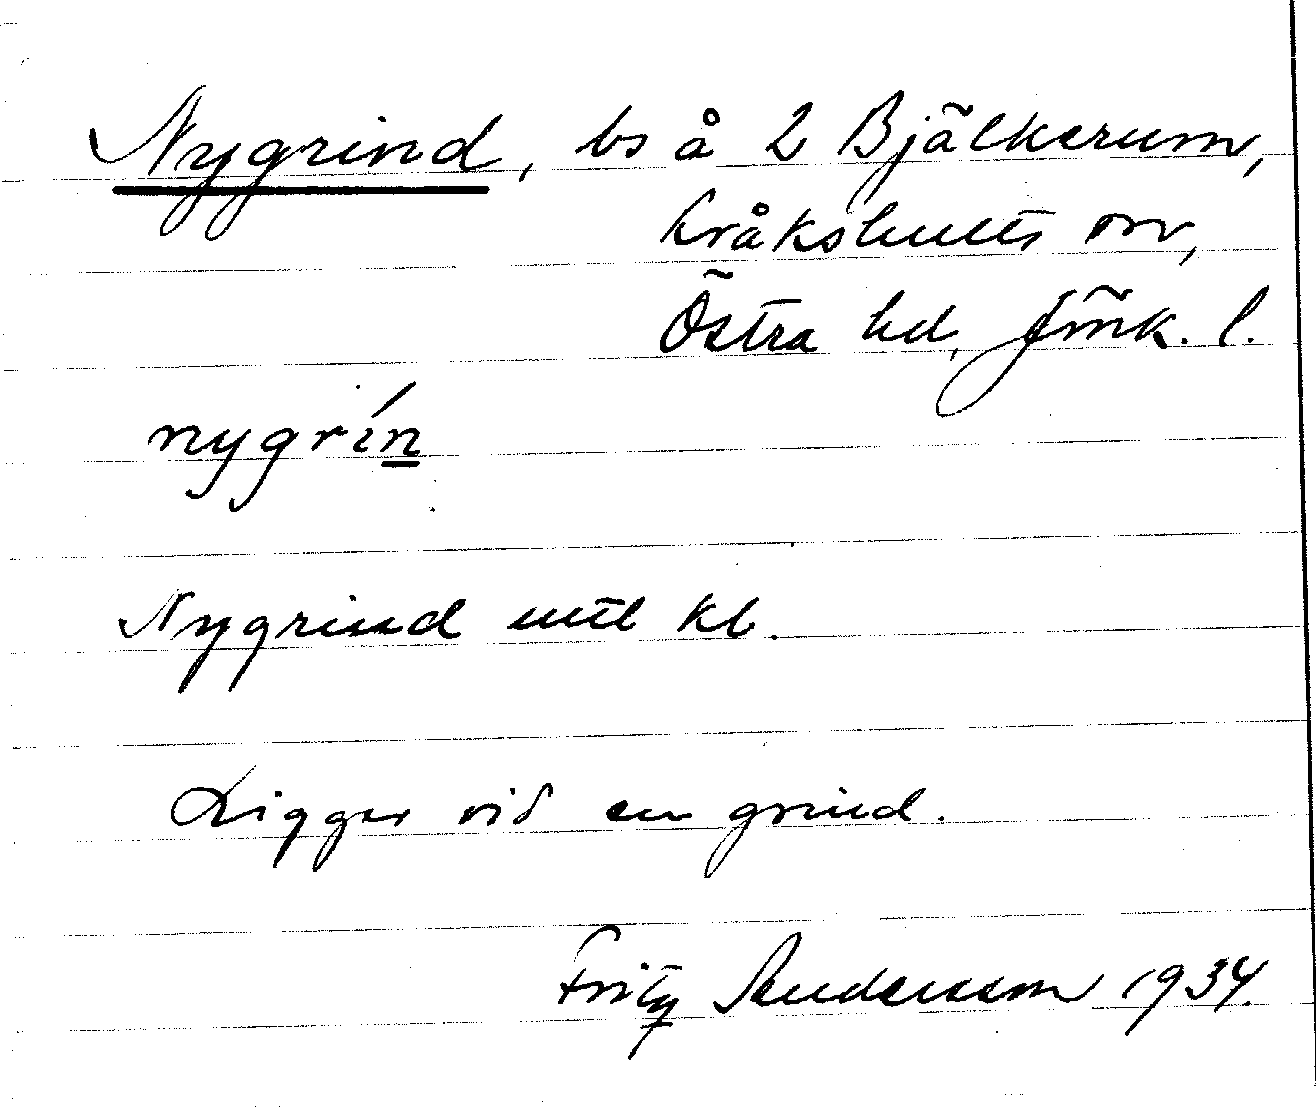 Nygrind, bs å 2 Bjälkerum,
Kråkshults sn,
Östra hd, Jönk. l.
nygrín
Nygrind enl kb.
Ligger vid en grind.
Fritz Andersson 1934.